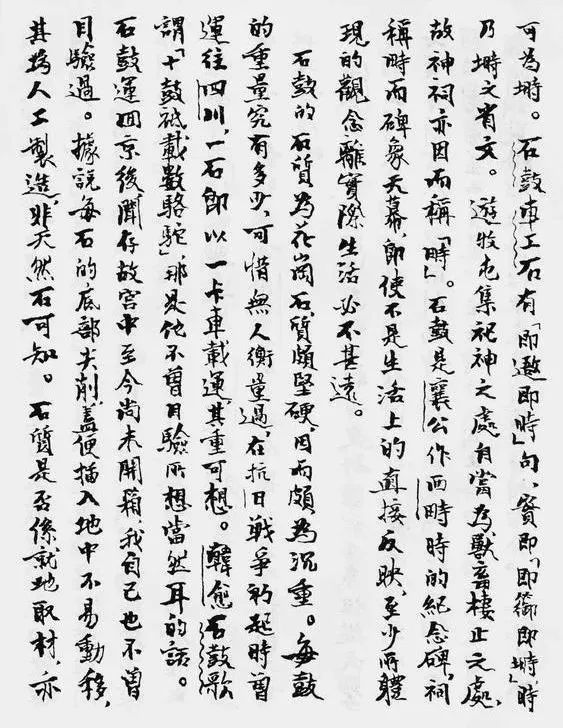 可為塒。石鼓車工石有「即邀即時」句，實即「即禦即塒」，時
乃塒之省文。遊牧屯集祀神之處自當為獸畜棲止之處，
故神祠亦因而稱「時」。石鼓是襄公作西畤時的紀念碑，祠
稱畤而碑象天幕，即使不是生活上的直接反映，至少所體
現的觀念離實際生活必不甚遠。
石鼓的石質為花崗石，質頗堅硬，因而頗為沉重。每鼓
的重量究有多少，可惜無人衡量過，在抗日戰爭初起時曾
運往四川，一石即以一卡車載運，其重可想。韓愈石鼓歌
謂「十鼓祇載數駱駝」，那是他不曾目驗所想當然耳的話。
石鼓運回京後聞存故宮中至今尚未開箱，我自己也不曾
目驗過。據說每石的底部尖削，蓋便插入地中不易動移，
其為人工製造，非天然石可知。石質是否係就地取材，亦